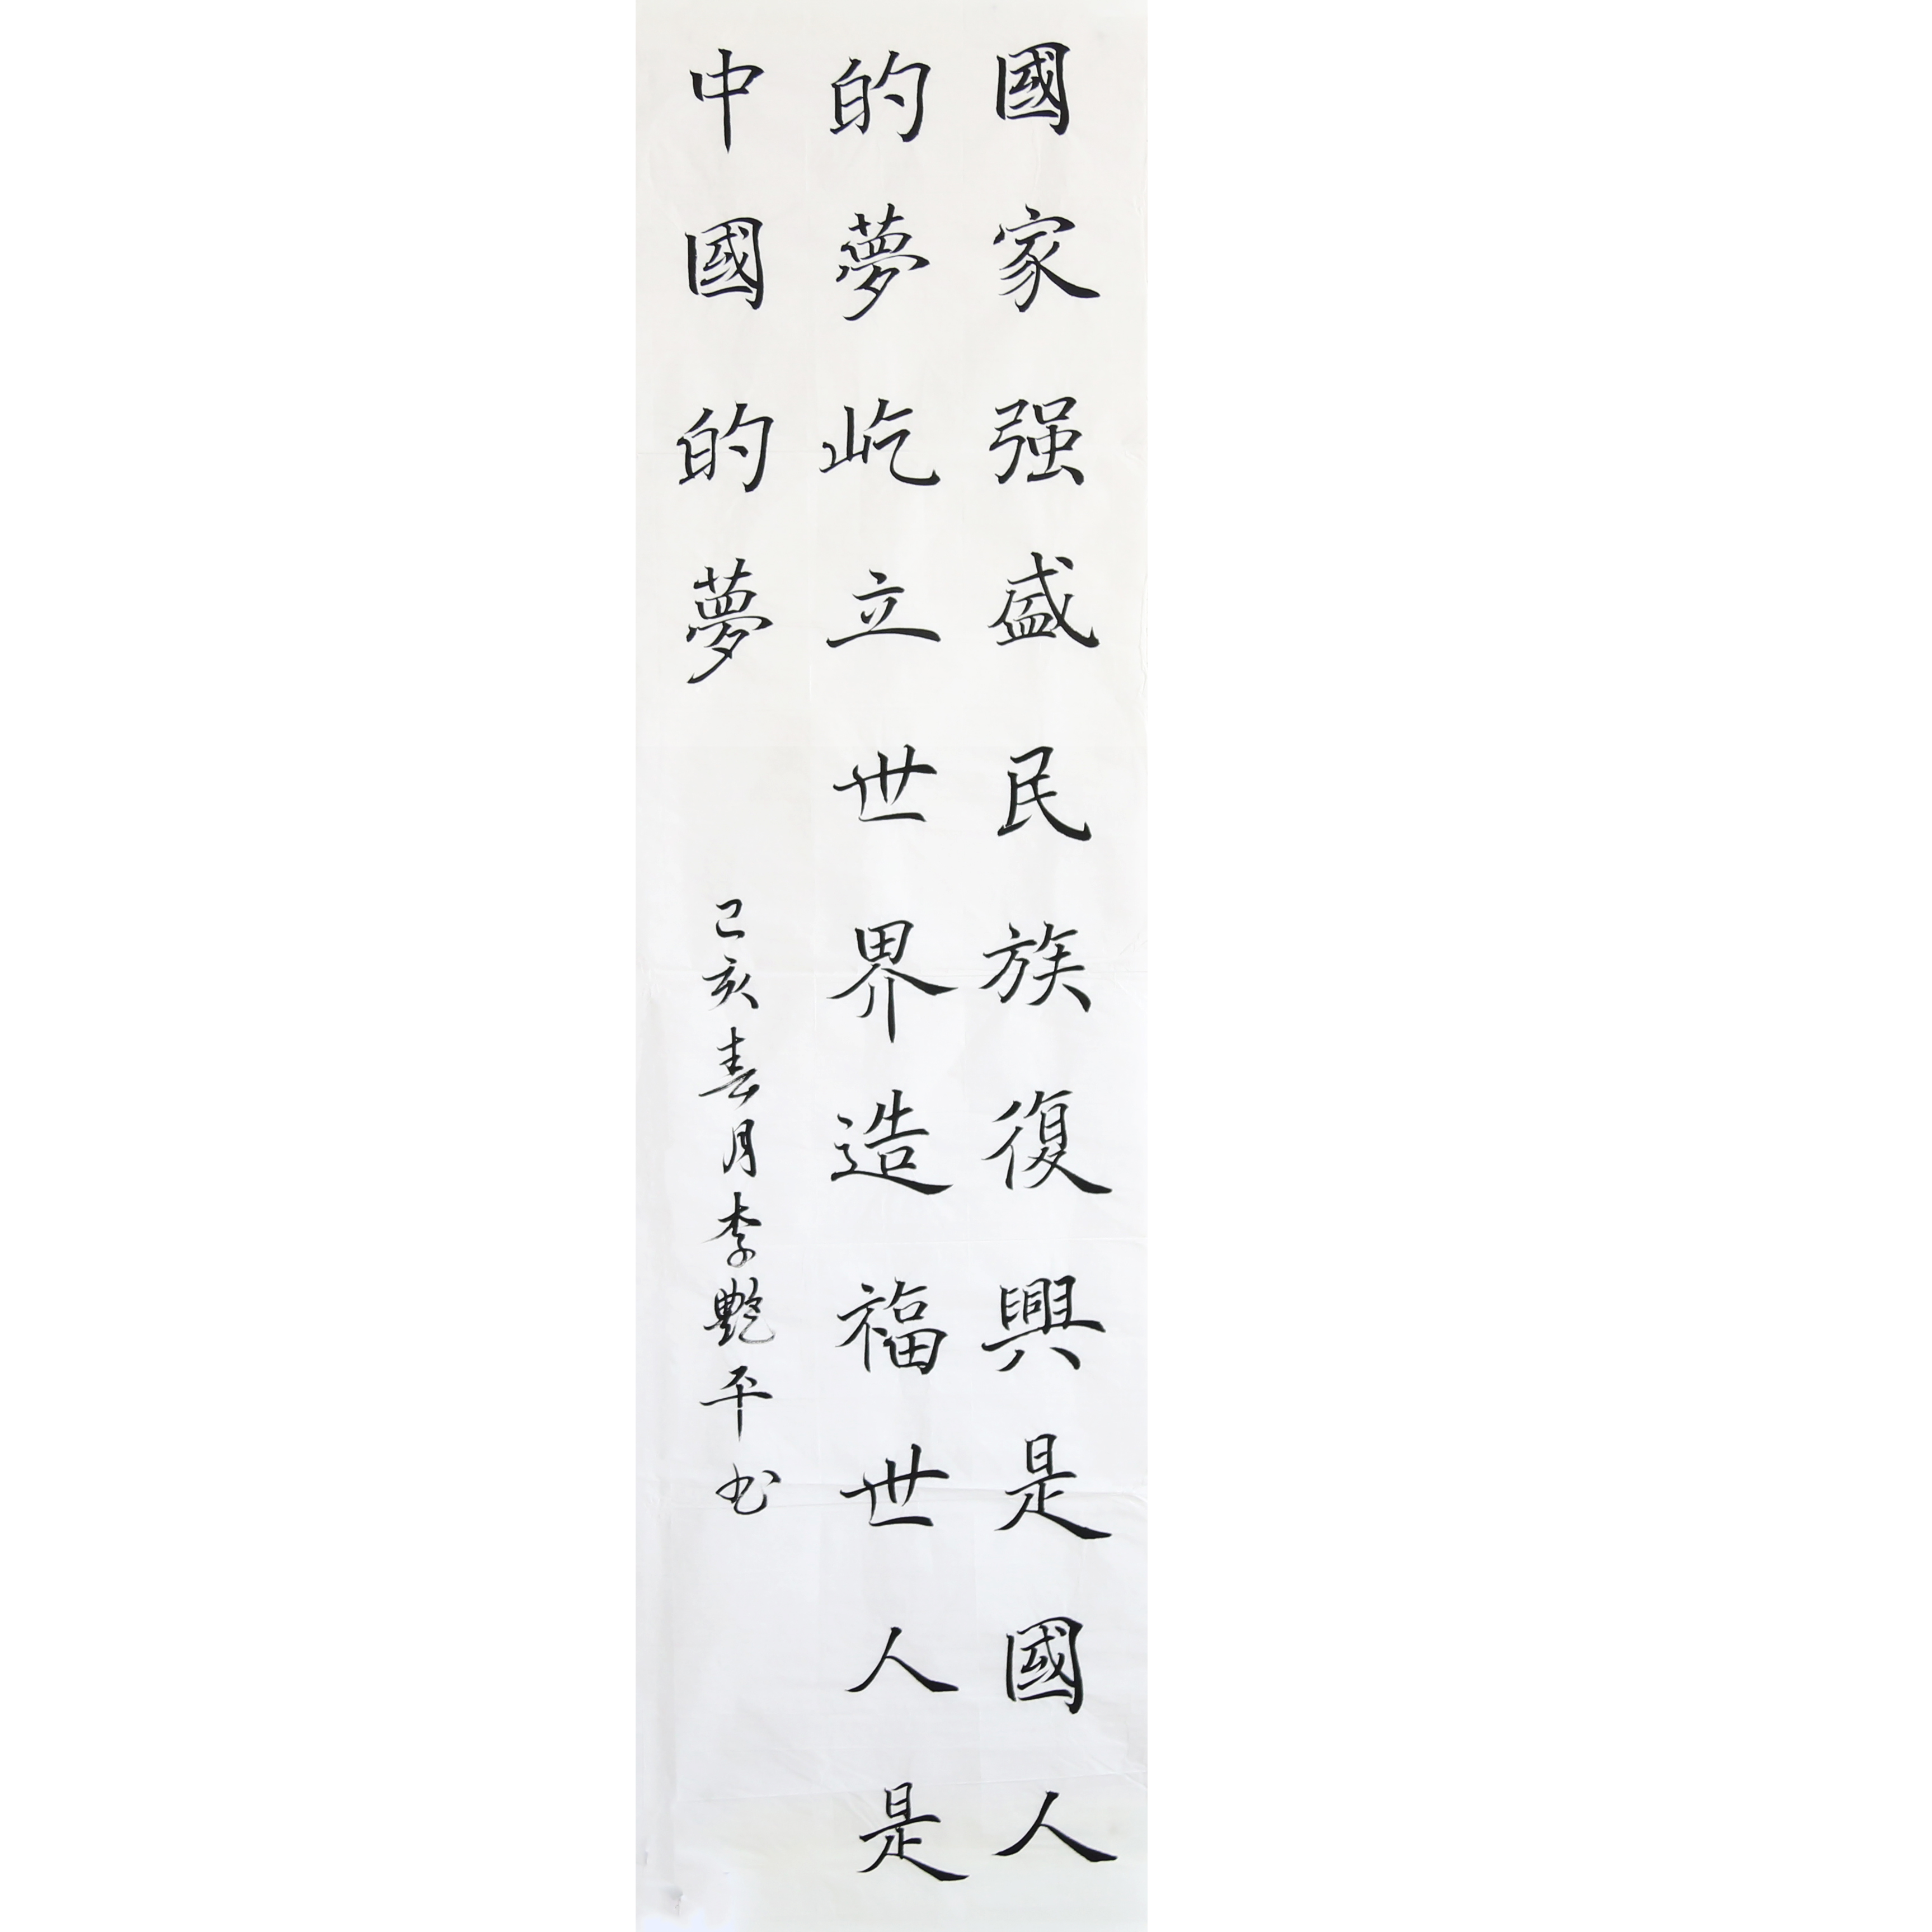 國家强盛民族復興是國人
的夢屹立世界造福世人是
中國的夢
己亥春月李艷平书